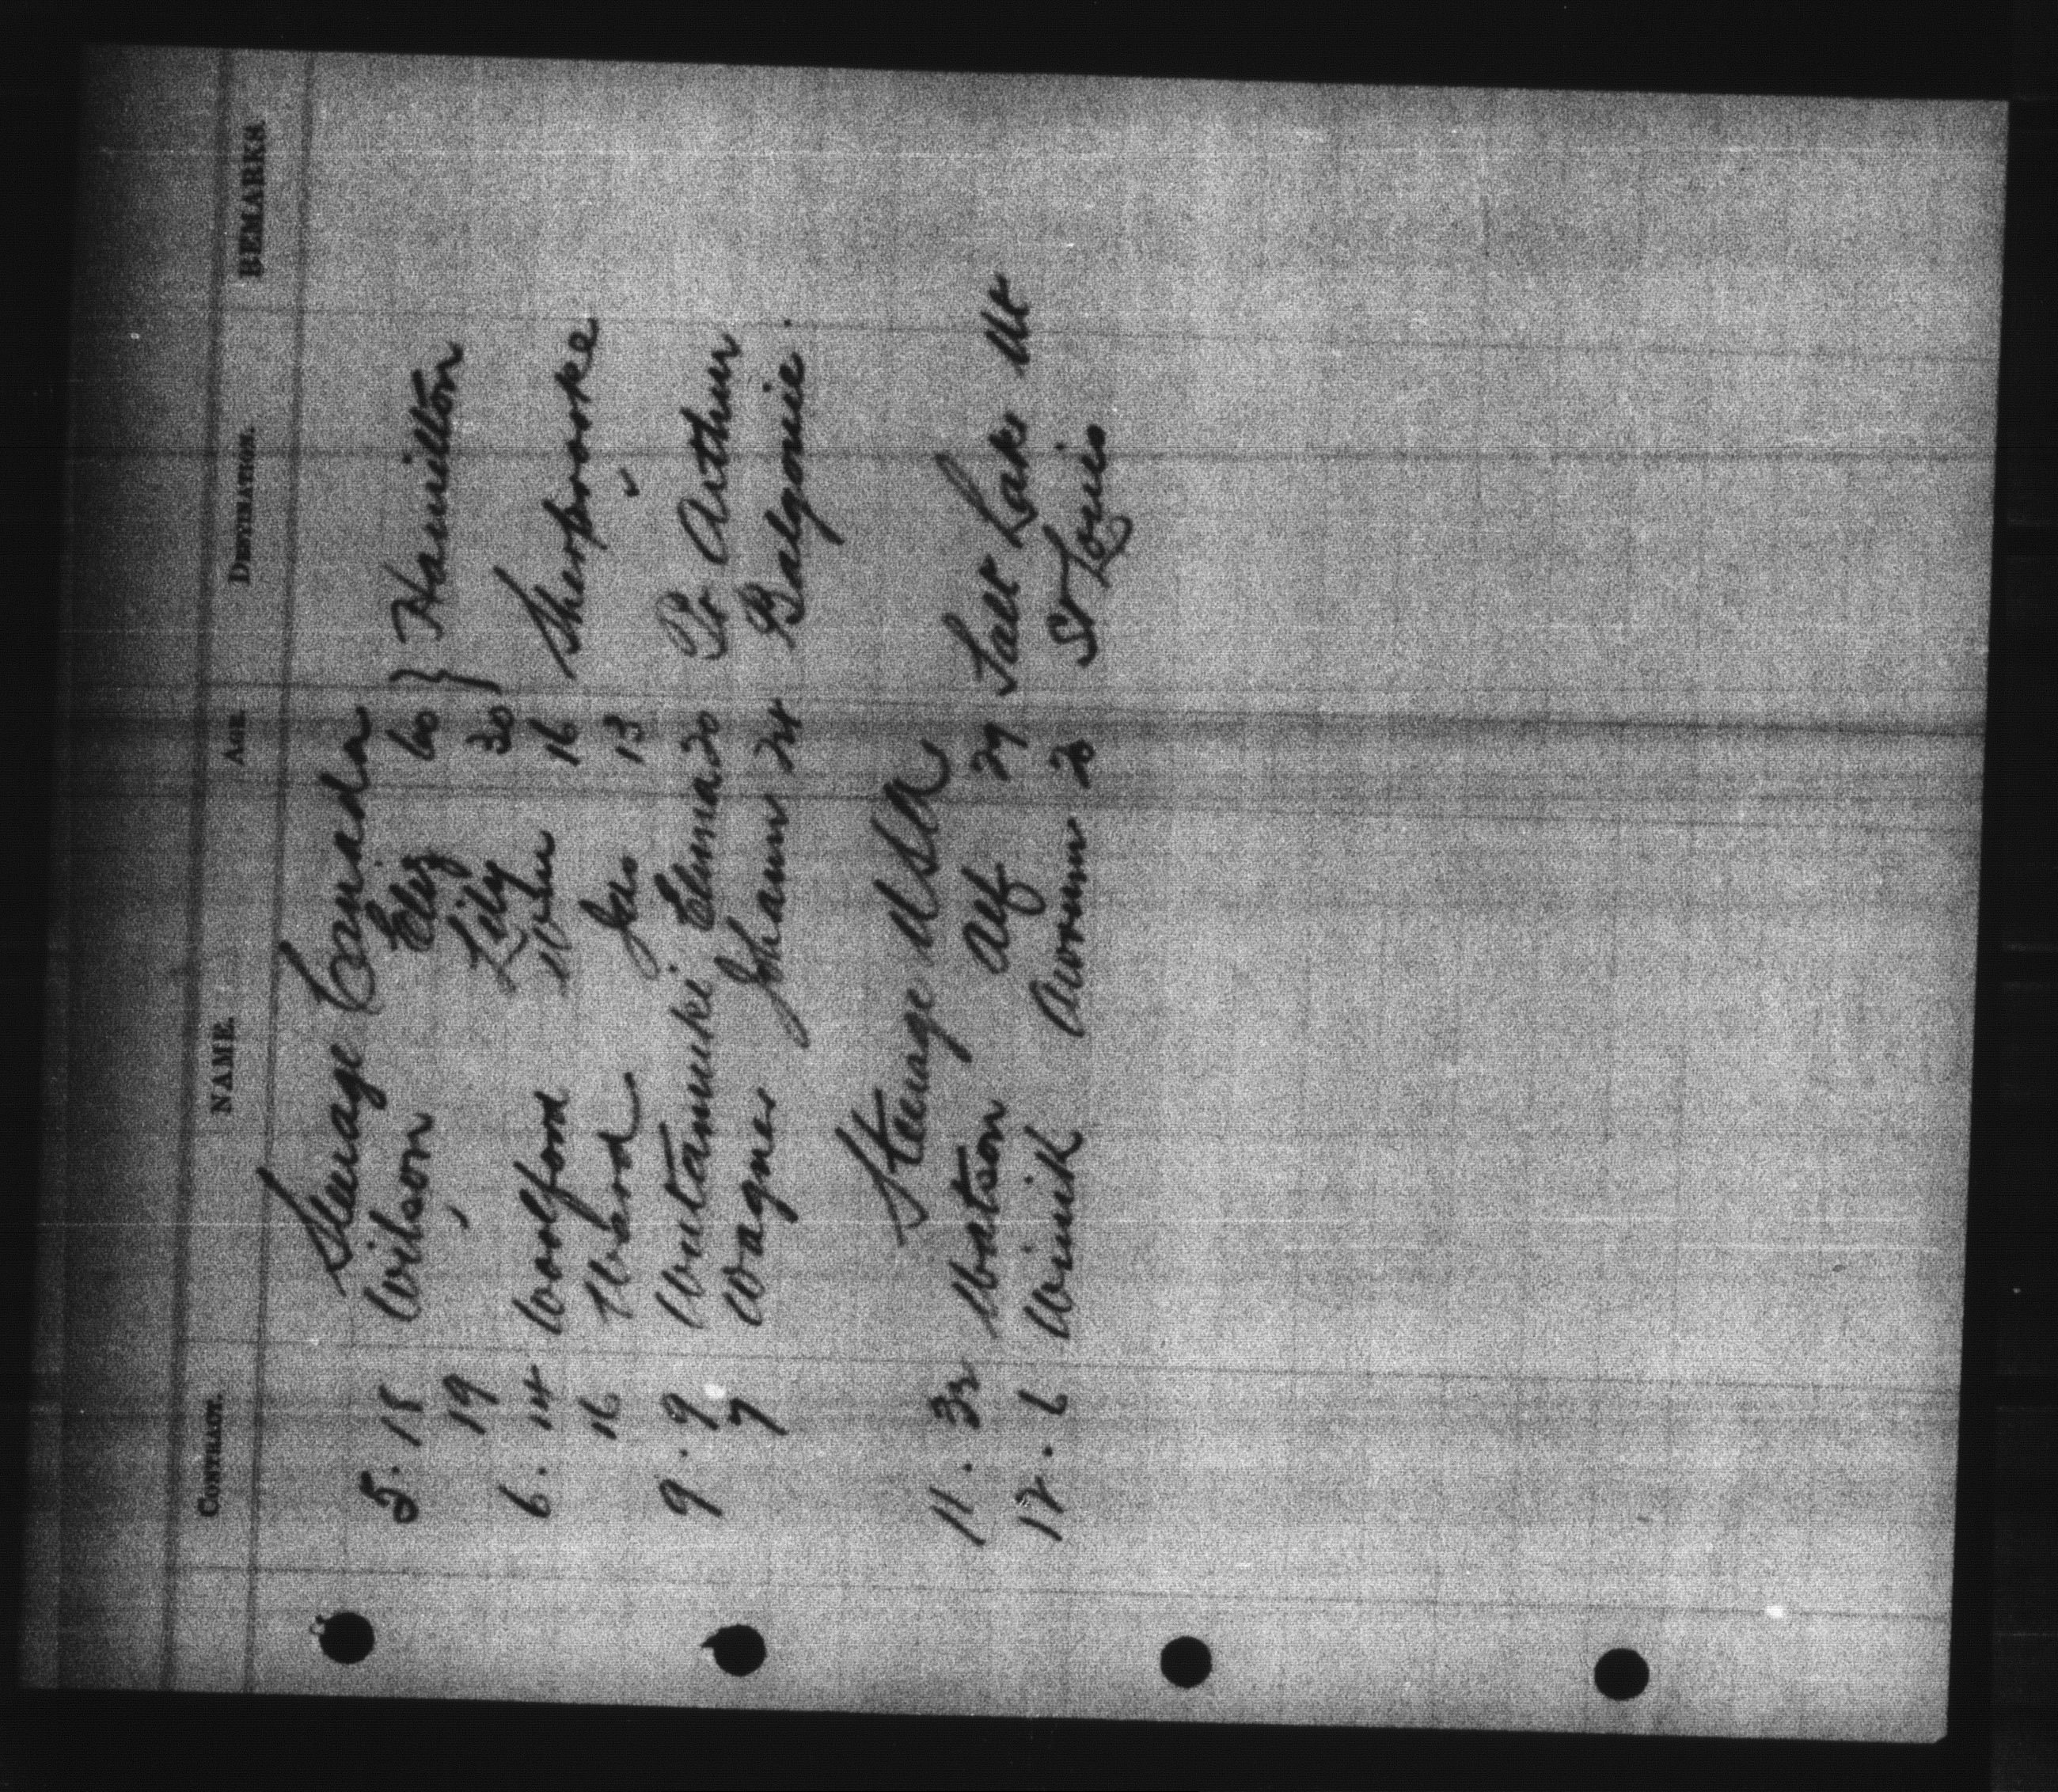 CONTRACT. NAME. AGE. DESTINATION. REMARKS
Steerage Canada
5. 18 Wilson Eliz 60 } Hamilton
19 " Lily 30 }
6. 14 Woolford 16 Sherbrooke
16 Ward Jas 13 "
9. 9 Elina 20 Pt Arthur
7 Wagner Johann 24 Balgonie.
Steerage USA
11. 32 Watson Alf 29 Salt Lake Ut
12. 6 Winik Avrum 20 St Louis